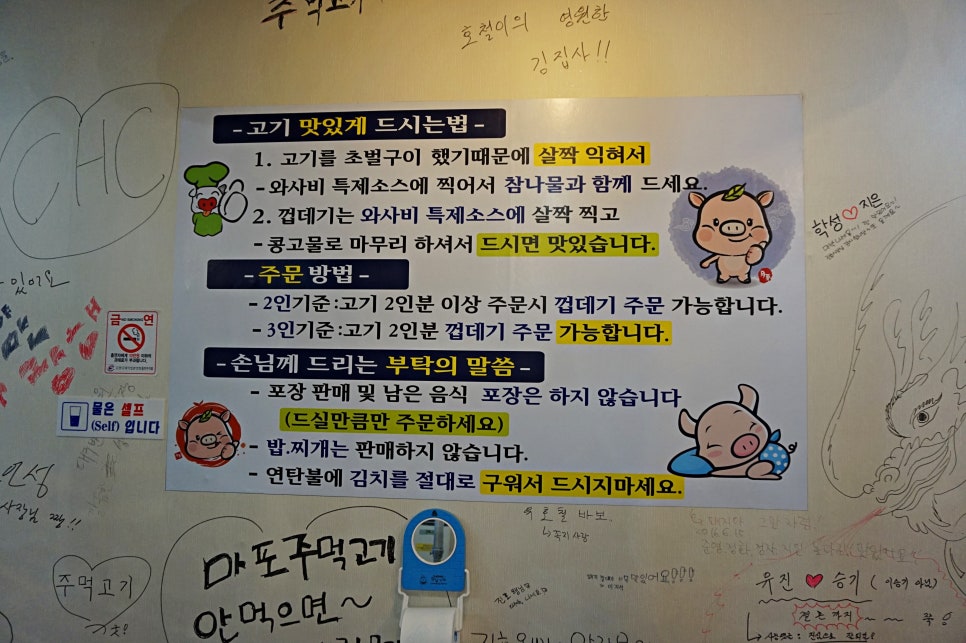 주먹고기
호철이의 영원한
김집사!!
CHC
- 고기 맛있게 드시는법 -
1. 고기를 초벌구이 했기때문에 살짝 익혀서
- 와사비 특제소스에 찍어서 참나물과 함께 드세요.
2. 껍데기는 와사비 특제소스에 살짝 찍고
- 콩고물로 마무리 하셔서 드시면 맛있습니다.
- 주문 방법 -
- 2인기준:고기 2인분 이상 주문시 껍데기 주문 가능합니다.
- 3인기준:고기 2인분 껍데기 주문 가능합니다.
- 손님께 드리는 부탁의 말씀 -
- 포장 판매 및 남은 음식 포장은 하지 않습니다
(드실만큼만 주문하세요)
- 밥.찌개는 판매하지 않습니다.
- 연탄불에 김치를 절대로 구워서 드시지마세요.
학성♡지은
금 연
물은 셀프
(Self) 입니다
인성
사장님 짱!!
호철 바보
주먹고기
마포주먹고기
안먹으면~
유진♥승기 (이승기 아님)
결혼까지